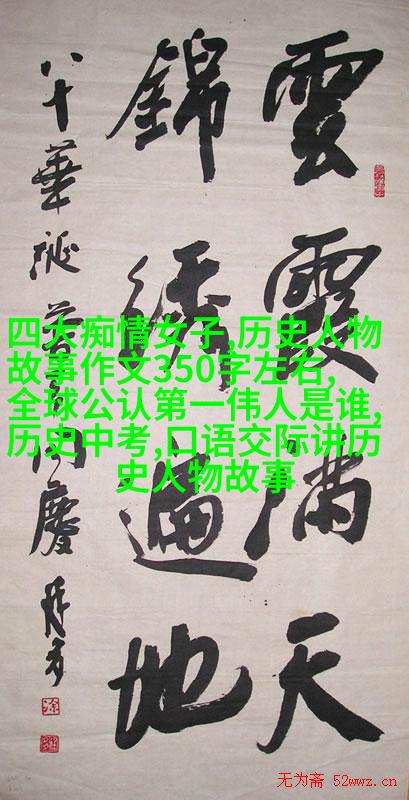 雲霞满天
錦綉遍地
八十華誕同慶
四大痴情女子,历史人物
故事作文350字左右,
全球公认第一伟人是谁,
历史中考,口语交际讲历
史人物故事
无为斋 52wwz.cn